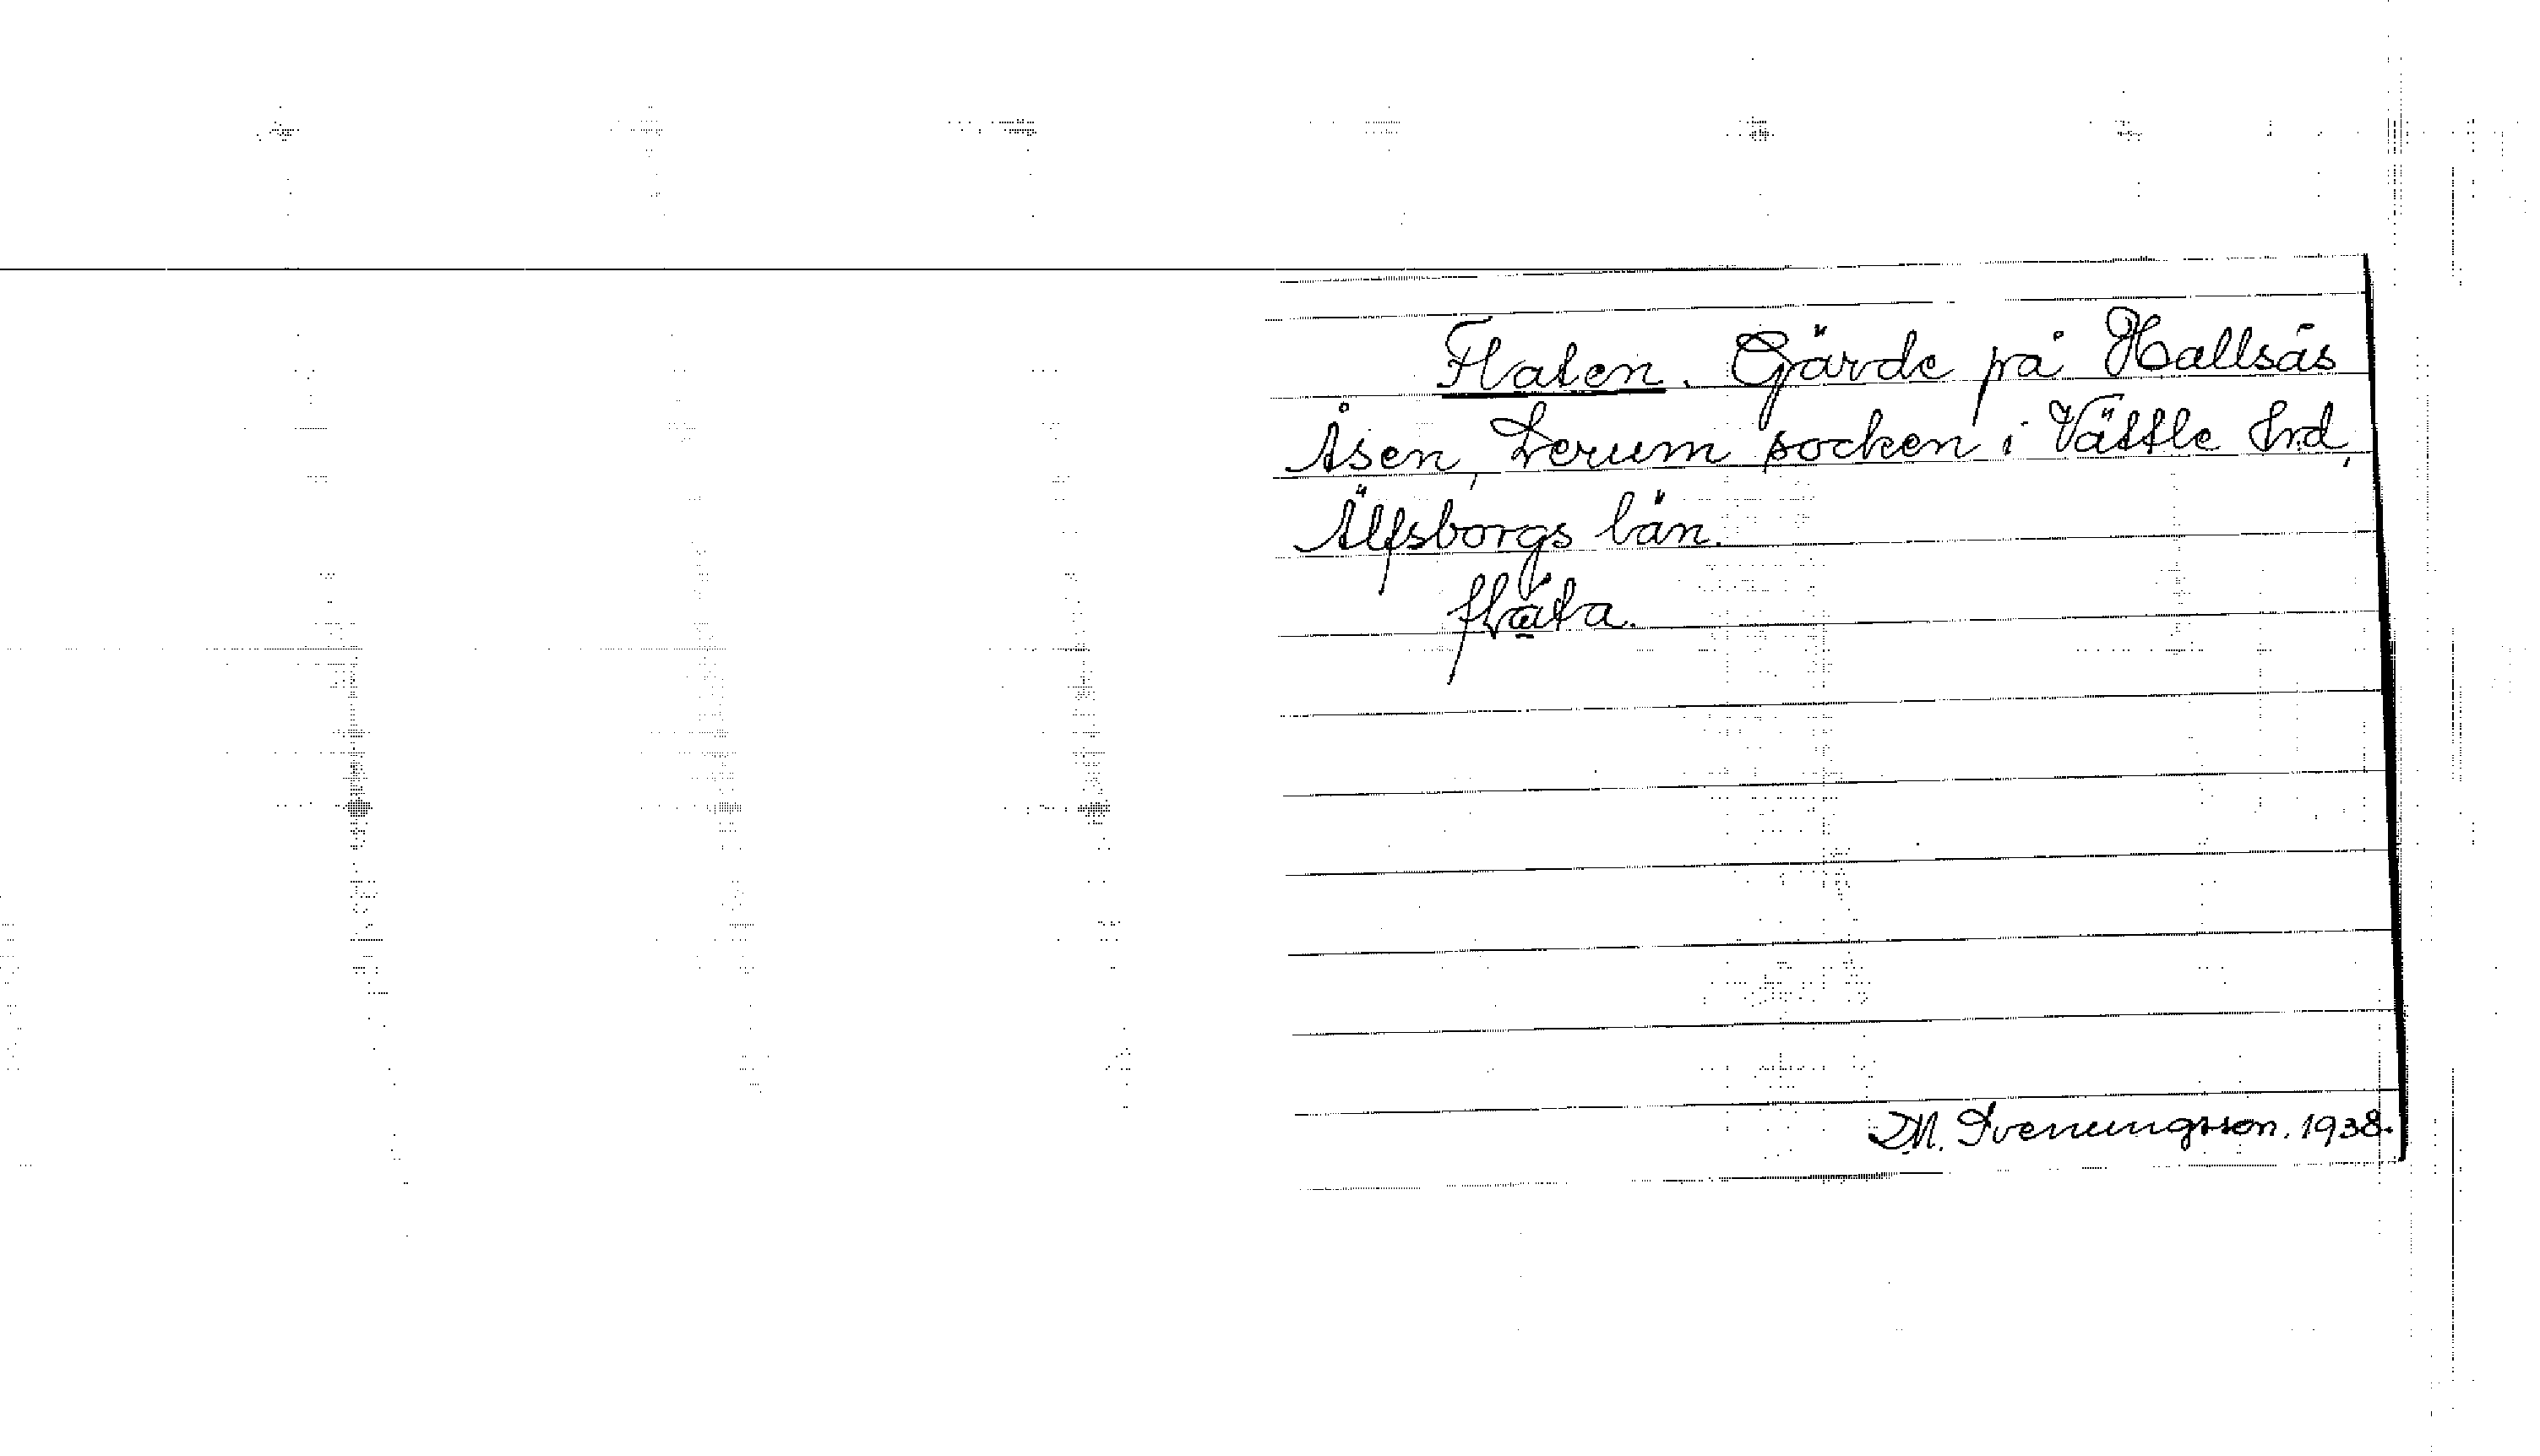 Flaten. Gärde på Hallsås
Åsen, Lerum socken i Vättle hrd,
Älfsborgs län.
flata.
D.N. Svenungsson. 1938.